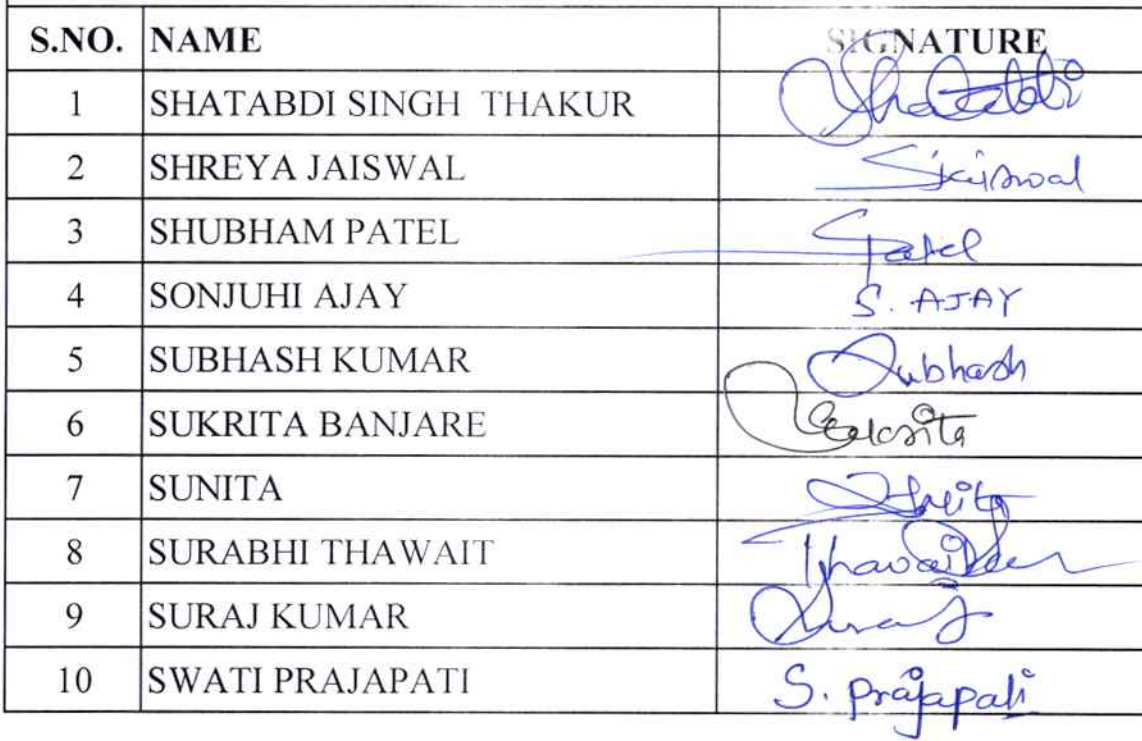 S.NO. NAME SIGNATURE
1 SHATABDI SINGH THAKUR Shatabdi
2 SHREYA JAISWAL SJaiswal
3 SHUBHAM PATEL SPatel
4 SONJUHI AJAY S. AJAY
5 SUBHASH KUMAR Subhash
6 SUKRITA BANJARE Sukrita
7 SUNITA Sunita
8 SURABHI THAWAIT
9 SURAJ KUMAR Suraj
10 SWATI PRAJAPATI S. Prajapati